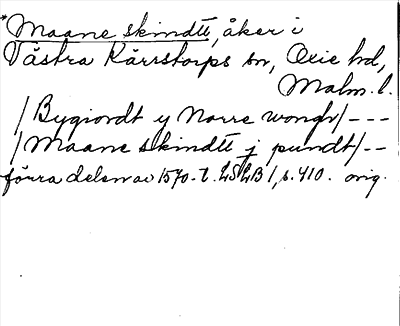 *Maane skindtt, åker i
Västra Kärrstorps sn, Oxie hd,
Malm. l.
/Bygiordt y Norre wongh/---
/Maane skindtt j pundt/--
förra delen av 1570-t. LSLB 1, s. 410. orig.